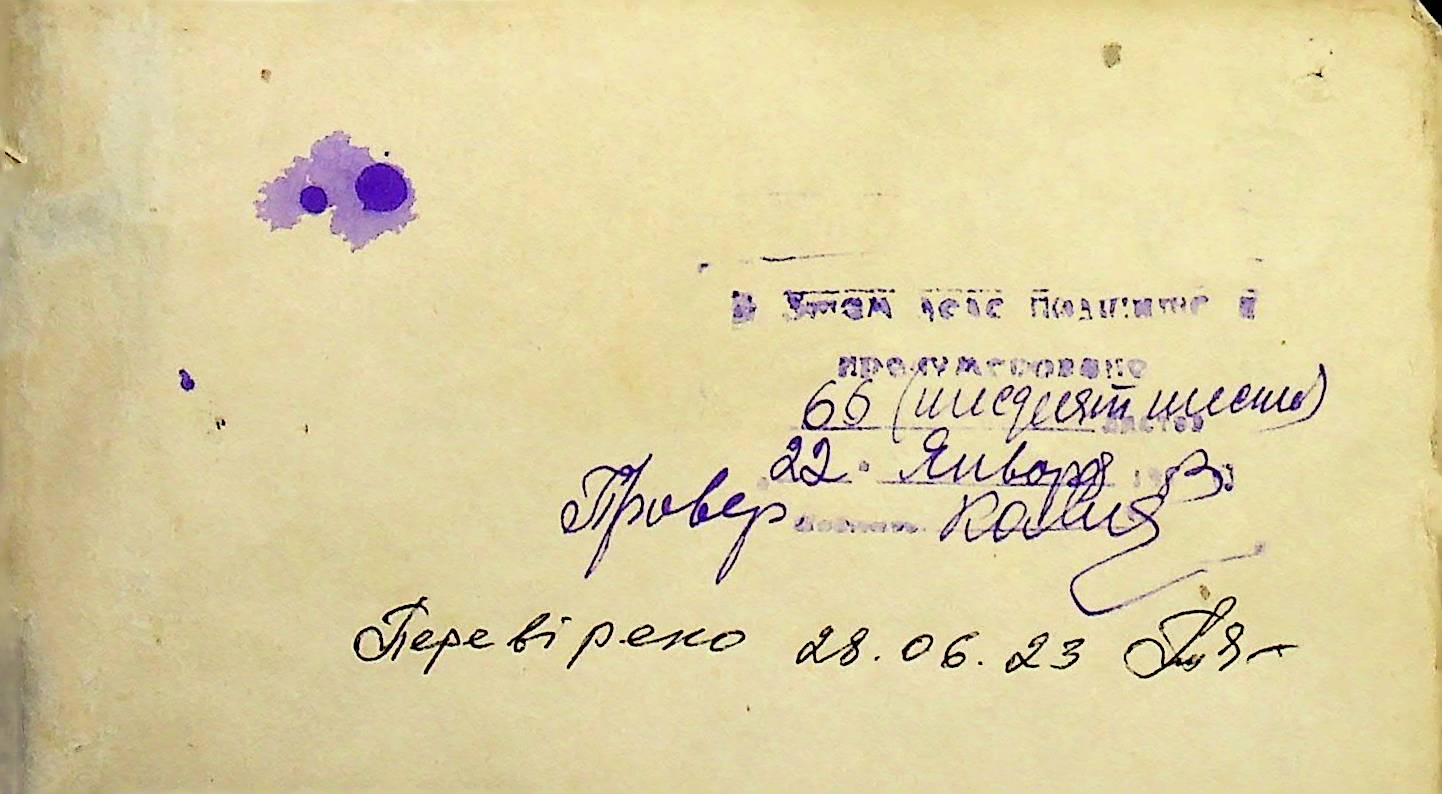 В этом деле подшито и
пронумеровано
66 (шисдесят шесть) листов
22. Января
Провер
Перевірено 28.06.23